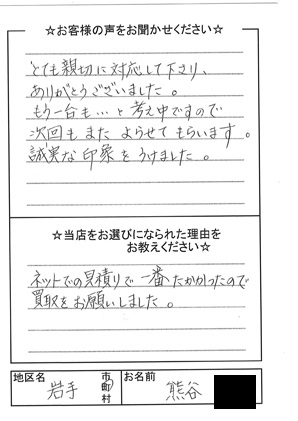 ☆お客様の声をお聞かせください☆
とても親切に対応して下さり、
ありがとうございました。
もう一台も…と考え中ですので
次回もまたよらせてもらいます。
誠実な印象をうけました。
☆当店をお選びになられた理由を
お教えください☆
ネットでの見積りで一番たかかったので
買取をお願いしました。
地区名 岩手 市町村 お名前 熊谷